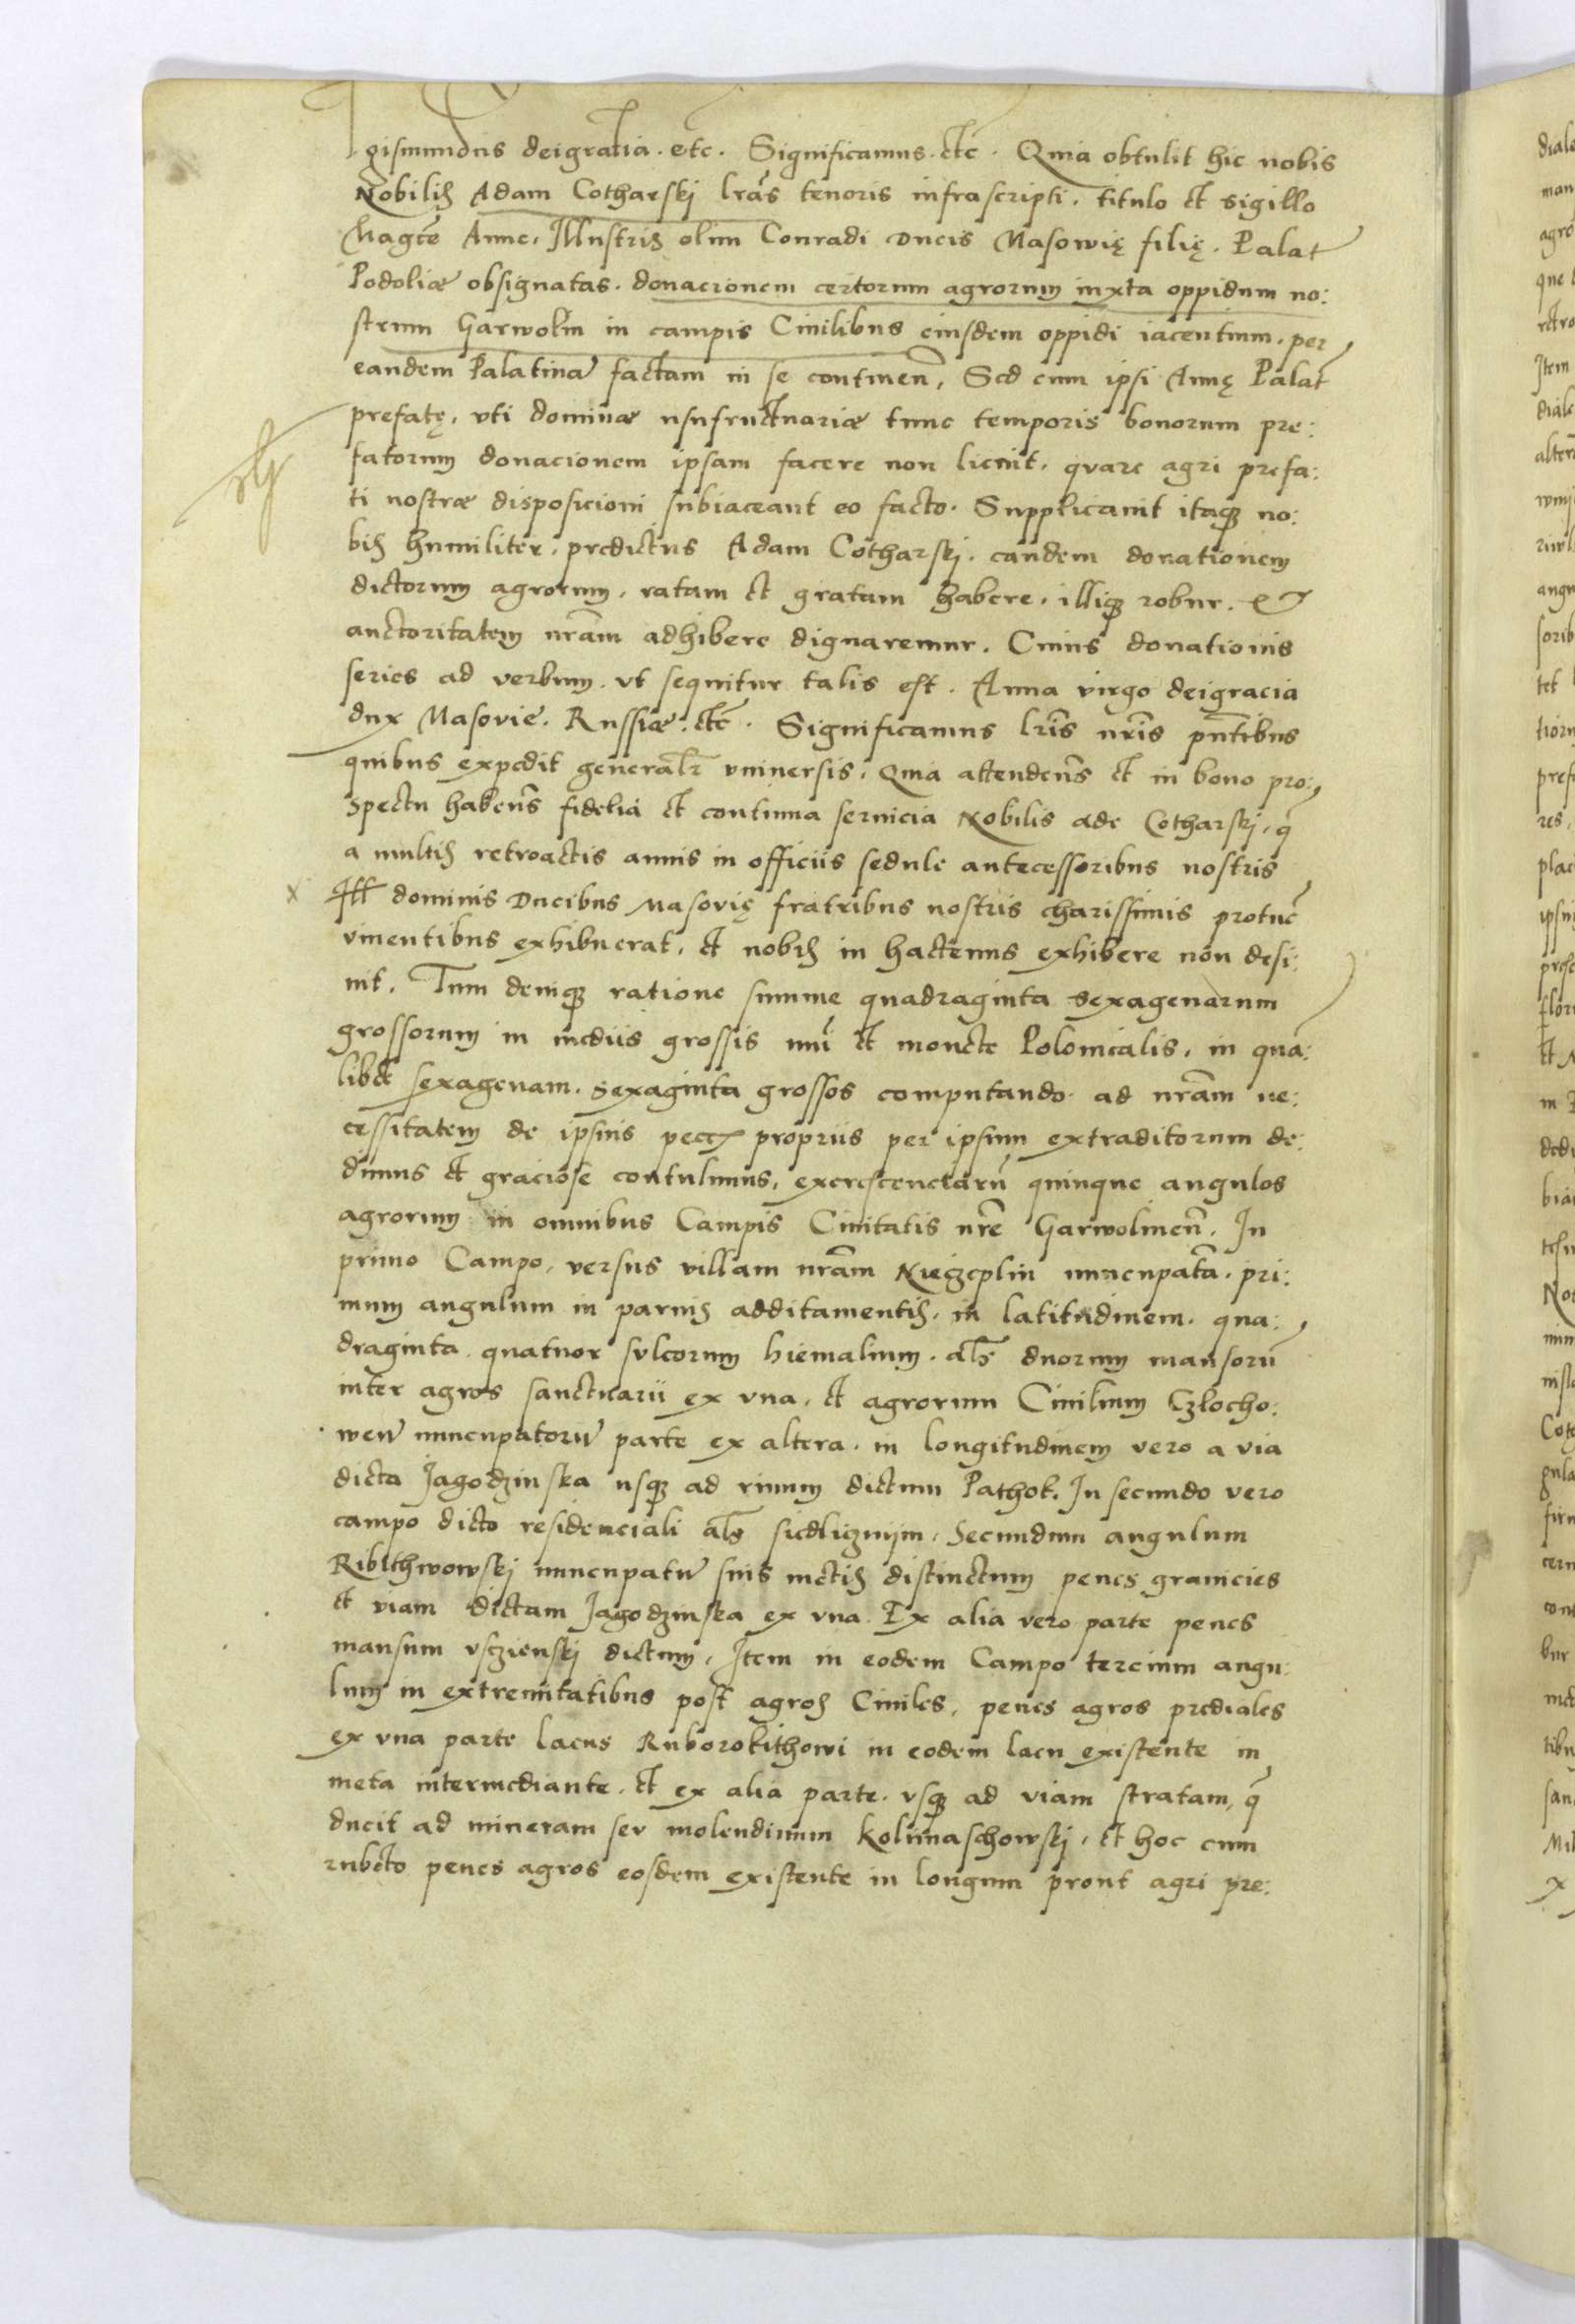 gismundus deigratia. etc. Significamus. etc. Quia obtulit hic nobis
Nobilis Adam Cotharskj lrãs tenoris infrascripti. titulo et sigillo
Magcẽ Anne. Illustris olim Conradi Ducis Masowię filię. Palat
Podoliæ obsignatas. donacionem certorum agrorum iuxta oppidum no:
strum Garwolin in campis Ciuilibus eiusdem oppidi iacentium. per
eandem Palatinã factam in se continen̄, Sed cum ipsi Annę Palat̃
prefatę, vti dominæ usufructuariæ tunc temporis bonorum pre:
fatorum donacionem ipsam facere non licuit, quare agri prefa:
ti nostræ disposicioni subiaceant eo facto. Supplicauit itaq̃ no:
bis humiliter. predictus Adam Cotharskj. eandem donationem
dictorum agrorum. ratam et gratam habere. illiq̃ robur. et
auctoritatem nrãm adhibere dignaremur. Cuius donationis
series ad verbum. vt sequitur talis est. Anna virgo deigracia
dux Masovie. Russiæ. etc̃. Significamus lrĩs nrĩs pñtibus
quibus expedit generalr̃ vniuersis. Quia attendeñs et in bono pro:
spectu habeñs fidelia et continua seruicia Nobilis ade Cotharskj, q̃
a multis retroactis annis in officiis sedule antecessoribus nostris
x Ill̃ dominis Ducibus Masovię fratribus nostris charissimis protunc̃
viuentibus exhibuerat. et nobis in hactenus exhibere non desi:
nit. Tum deniq̃ ratione summe quadraginta sexagenarum
grossorum in mediis grossis nuĩ et monete Polonicalis, in qua:
libet sexagenam. sexaginta grossos computando. ad nrãm ne:
cessitatem de ipsius propriis per ipsum extraditorum de:
dimus et graciose contulimus, excrescenciarũ quinque angulos
agrorum in omnibus Campis Ciuitatis nrẽ Garwolineñ. In
primo Campo. versus villam nrãm Nieczeplin nuncupatã. pri:
mum angulum in paruis additamentis. in latitudinem. qua:
draginta quatuor sulcorum hiemalium. al̃s duorum mansorũ
inter agros sanctuarii ex vna. et agrorum Ciuilium Człocho:
wem nuncupatorũ parte ex altera. in longitudinem vero a via
dicta Jagodzinska usq̃ ad riuum dictum Pathok. In secundo vero
campo dicto residenciali al̃s siedlicznijm, Secundum angulum
Ribithwowskj nuncupatũ suis metis distinctum penes granicies
et viam dictam Jagodzinska ex vna. Ex alia vero parte penes
mansum vsczienskj dictum, Item in eodem Campo tercium angu:
lum in extremitatibus post agros Ciuiles, penes agros prediales
ex vna parte lacus Ruborokithowi in eodem lacu existente in
meta intermediante. et ex alia parte. vsq̃ ad viam stratam, q̃
ducit ad mineram seu molendinum kolimaschowskj, et hoc cum
rubeto penes agros eosdem existente in longum prout agri pre: